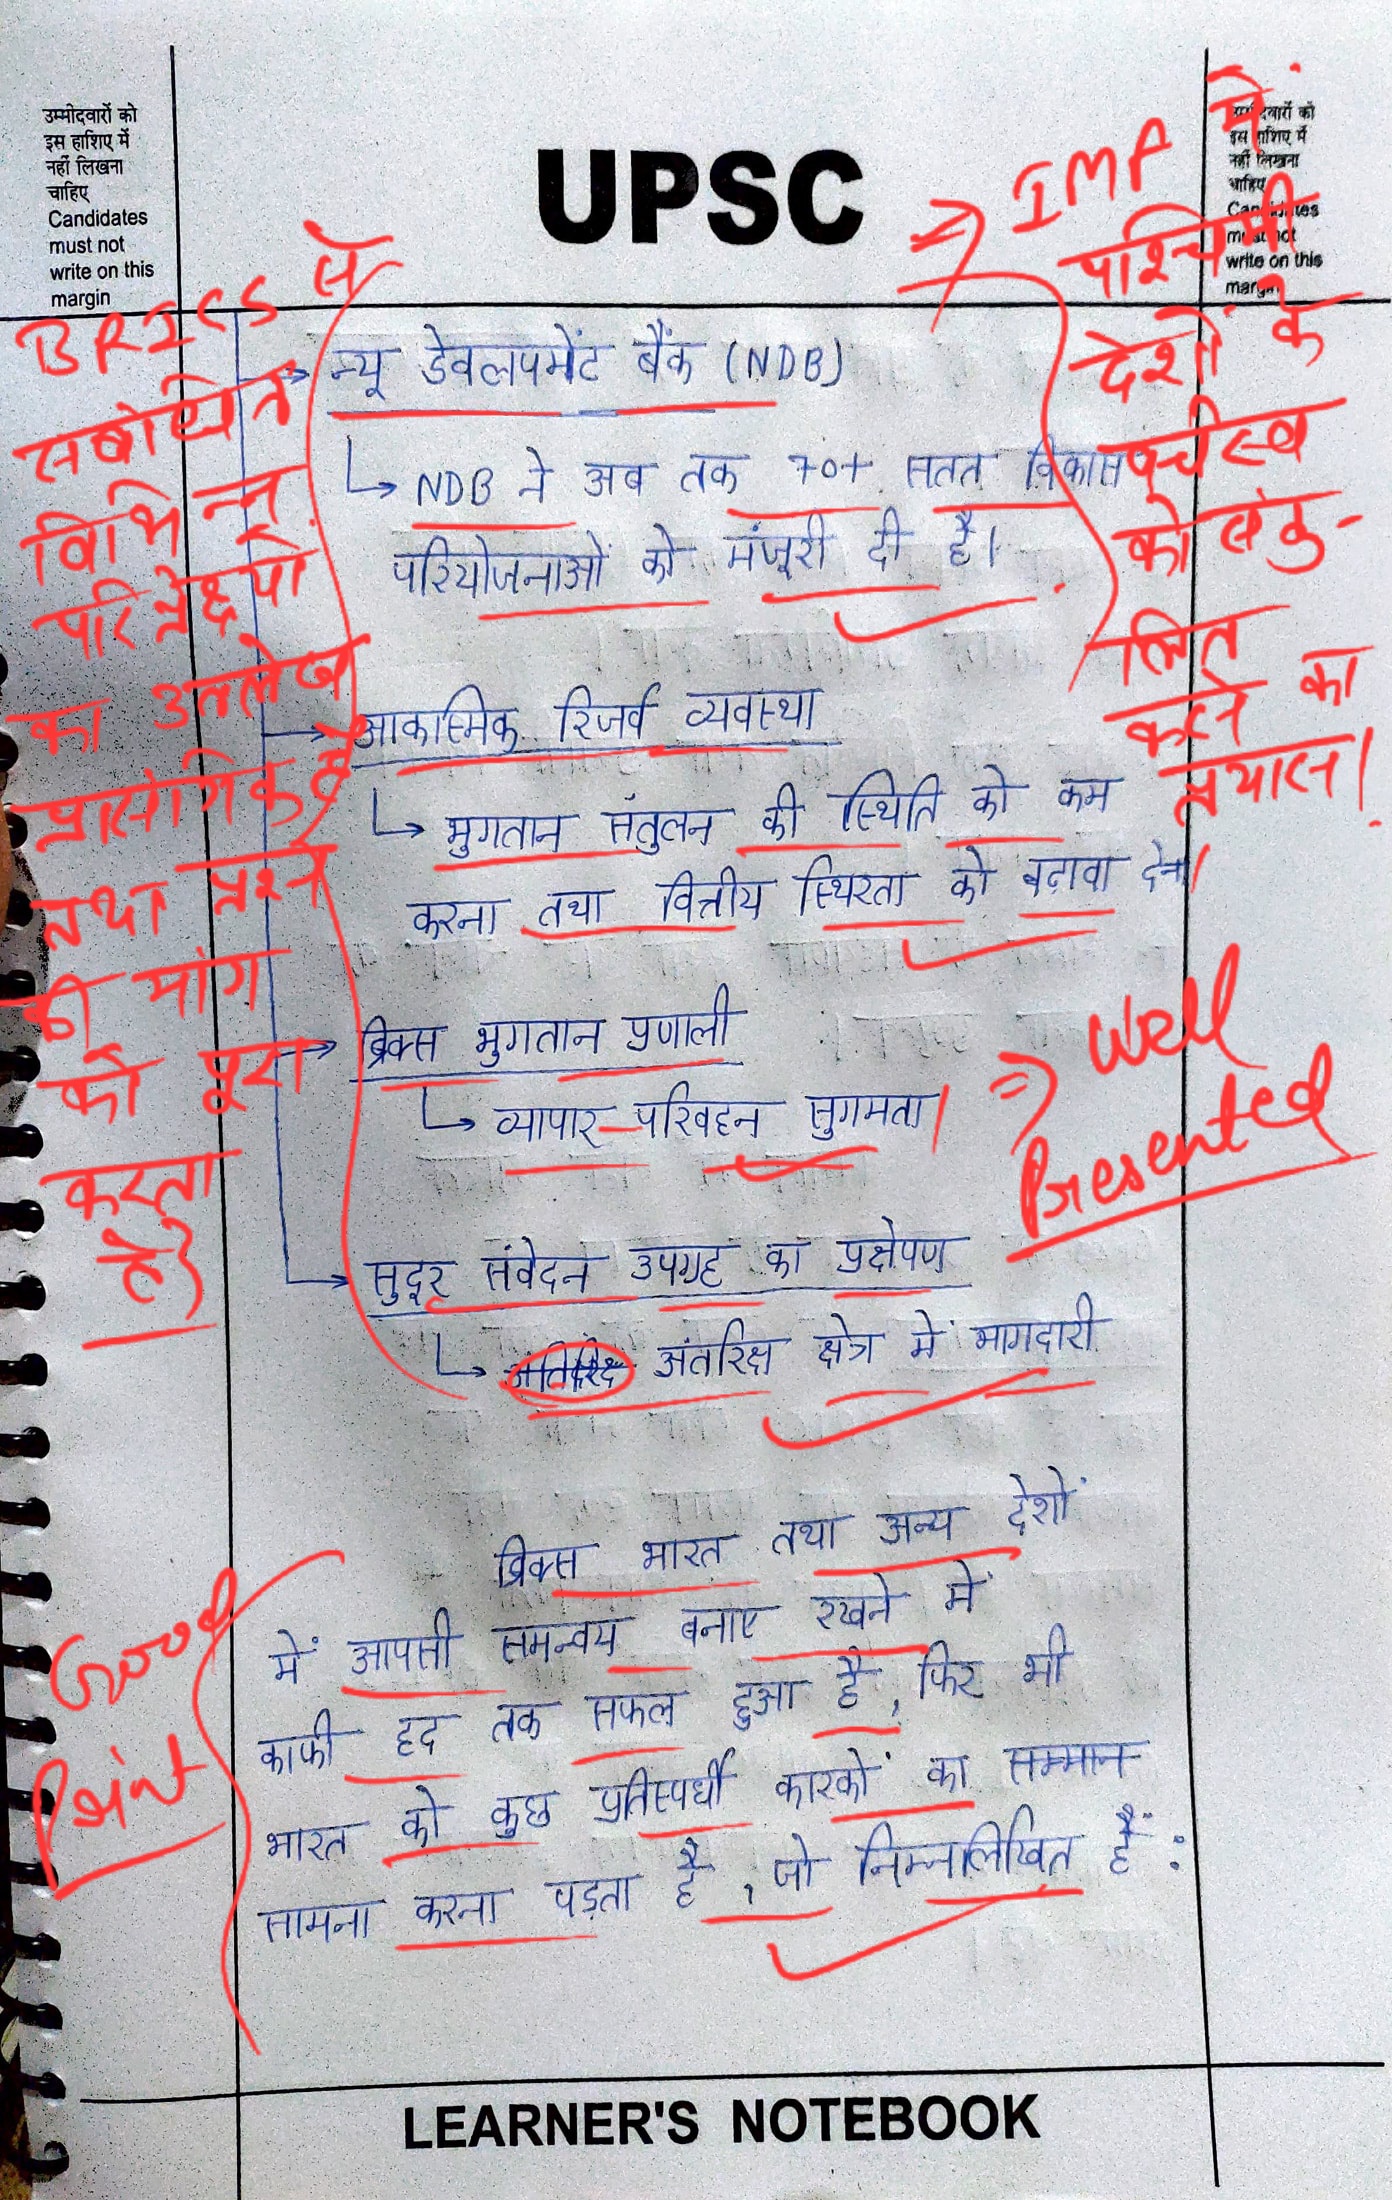 उम्मीदवारों को
इस हाशिए में
नहीं लिखना
चाहिए
Candidates
must not
write on this
margin
UPSC
उम्मीदवारों को
इस हाशिए में
नहीं लिखना
चाहिए
Candidates
must not
write on this
margin
BRICS से
संबोधित
विभिन्न
परिप्रेक्ष्यों
का उल्लेख
प्रासंगिक है
तथा प्रश्न
की मांग
को पूरा
करता
है
⇒ IMF में
पश्चिमी
देशों के
वर्चस्व
को संतु-
लित
करने का
प्रयास।
→ न्यू डेवलपमेंट बैंक (NDB)
↳ NDB ने अब तक 70+ सतत विकास
परियोजनाओं को मंजूरी दी है।
→ आकास्मिक रिजर्व व्यवस्था
↳ भुगतान संतुलन की स्थिति को कम
करना तथा वित्तीय स्थिरता को बढ़ावा देना
→ ब्रिक्स भुगतान प्रणाली
↳ व्यापार-परिवहन सुगमता
⇒ Well
Presented
→ सुदूर संवेदन उपग्रह का प्रक्षेपण
↳ अंतरिक्ष क्षेत्र में भागदारी
Good
Point
ब्रिक्स भारत तथा अन्य देशों
में आपसी समन्वय बनाए रखने में
काफी हद तक सफल हुआ है, फिर भी
भारत को कुछ प्रतिस्पर्धी कारकों का सम्मान
सामना करना पड़ता है, जो निम्नलिखित हैं:
LEARNER'S NOTEBOOK